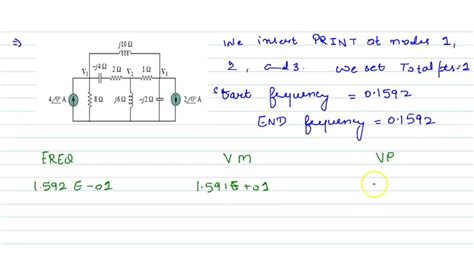 ⇒)
j10 Ω
V₁ -j4 Ω 2 Ω V₂ 1 Ω V₃
4∠0° A 8 Ω j6 Ω -j2 Ω 2∠0° A
We insert PRINT at nodes 1,
2, and 3. we set Total pts=1
Start frequency = 0.1592
END frequency = 0.1592
FREQ VM VP
1.592 E-01 1.591E+01